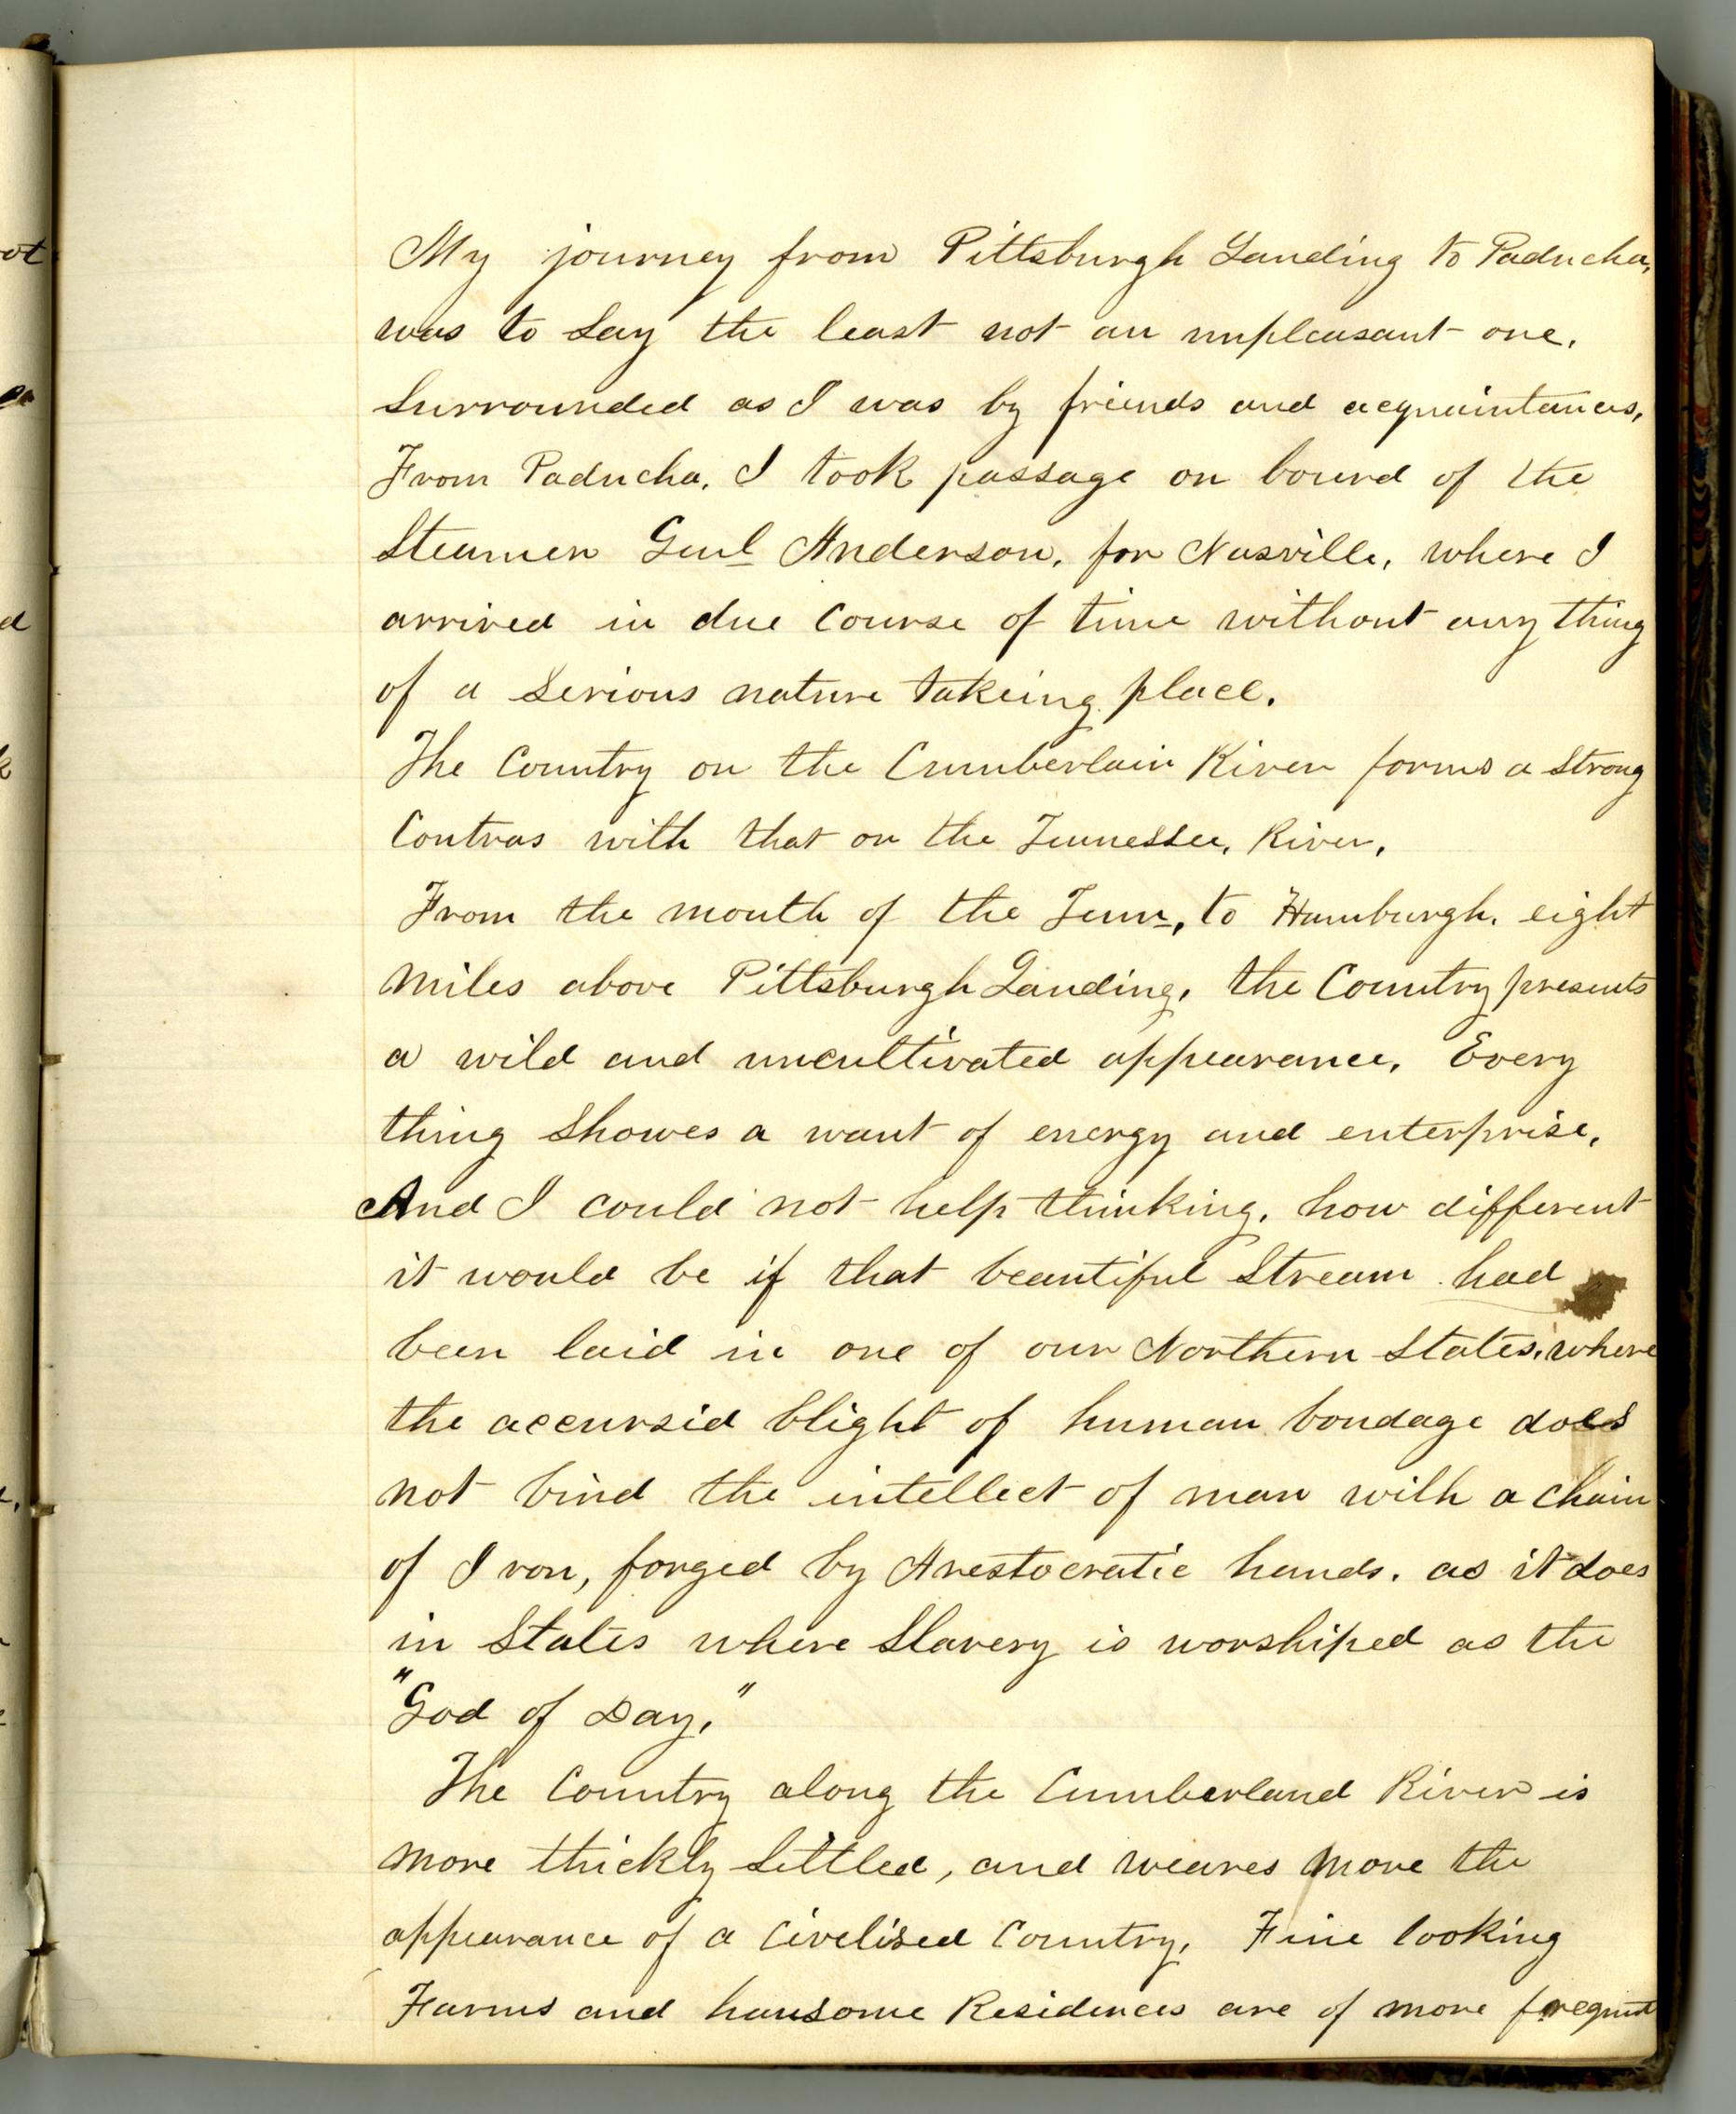 My journey from Pittsburgh Landing to Paducha,
was to say the least not an unpleasant one.
Surrounded as I was by friends and acquaintances,
From Paducha, I took passage on bourd of the
Steamer Genl Anderson, for Nasville, where I
arrived in due Course of time without any thing
of a serious nature takeing place.
The Country on the Cumberlain River forms a strong
Contras with that on the Tennessee, River,
From the mouth of the Tenn, to Hamburgh, eight
Miles above Pittsburgh Landing, the Country presents
a wild and uncultivated appearance, Every
thing Showes a want of energy and enterprise,
And I could not help thinking, how different
it would be if that beautiful Stream had
been laid in one of our Northern States, where
the accursed blight of human bondage does
not bind the intellect of man with a chain
of Iron, forged by Arestocratic hands, as it does
in States where Slavery is worshiped as the
"God of Day,"
The Country along the Cumberland River is
more thickly Settled, and weares more the
appearance of a Civelised Country, Fine looking
Farms and hansome Residences are of more
ot
d
k